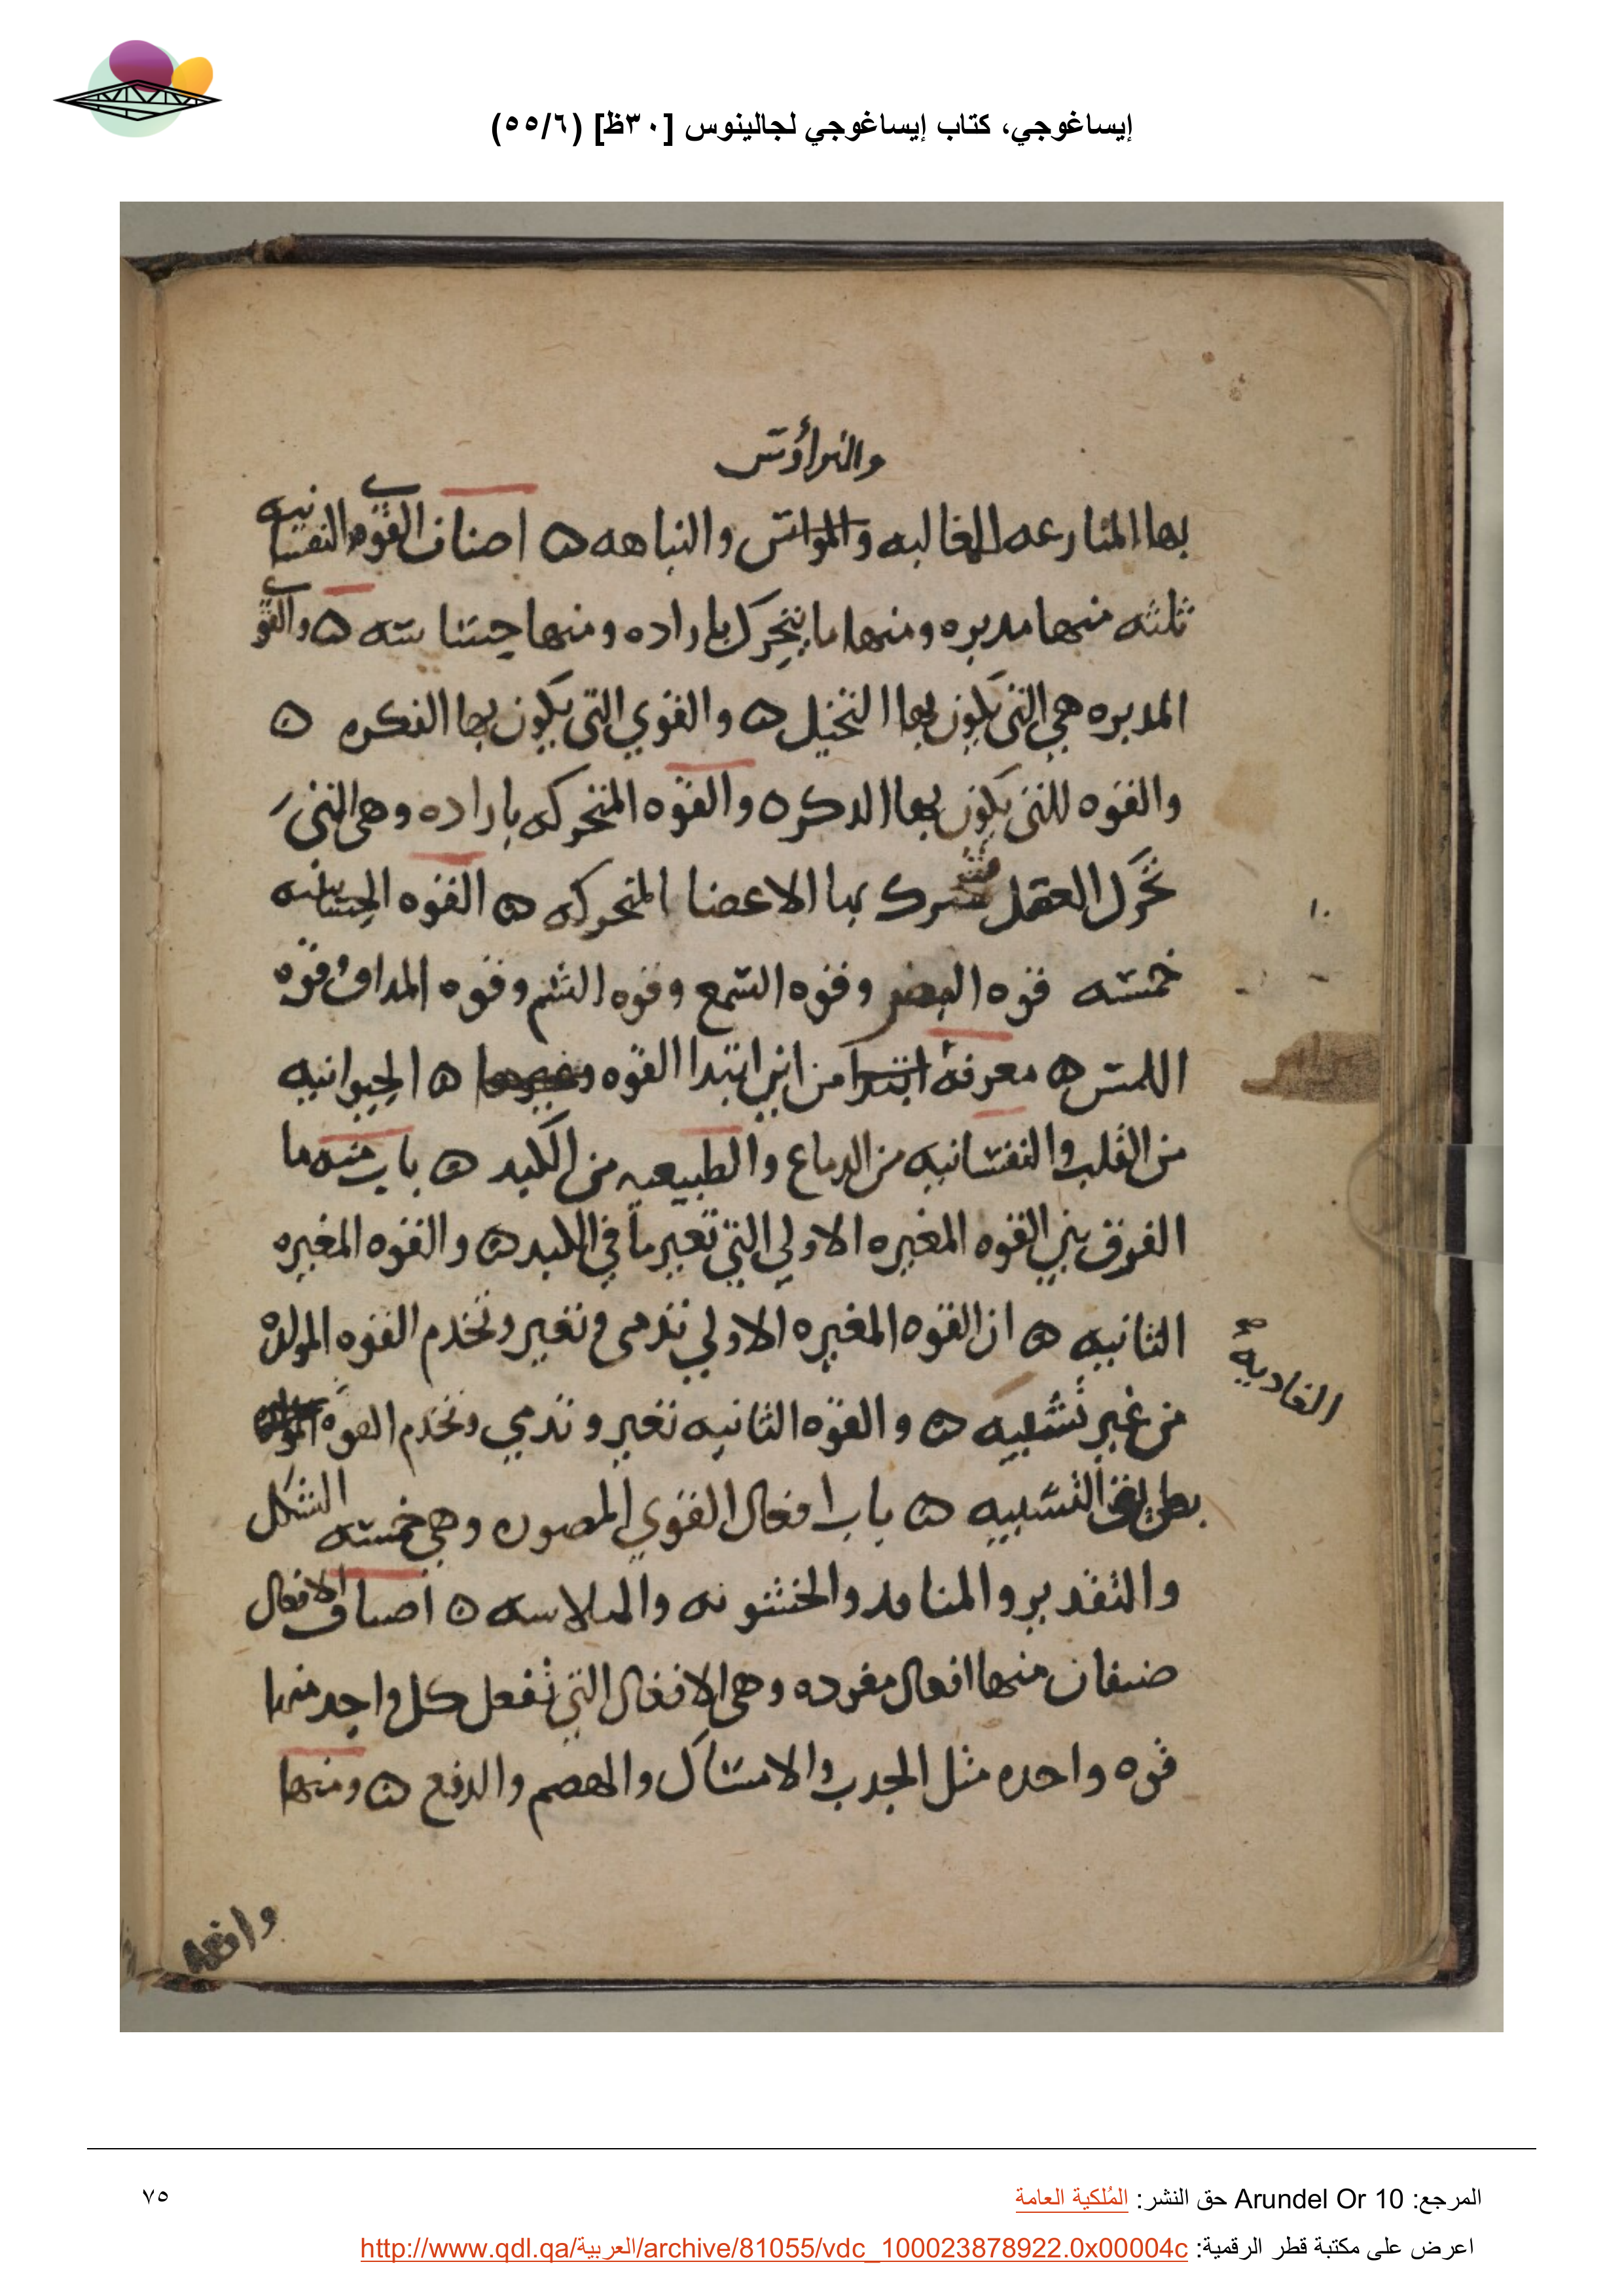 إيساغوجي، كتاب إيساغوجي لجالينوس [٣٠ظ] (٥٥/٦)
والتراؤس
بها المنازعه للغالبه والنباهه ه اصناف القوي النفسانيه
ثلثه منها مدبره ومنها ما يتحرك باراده ومنها حساسه ه والقوي
المدبره هي التي يكون بها التخيل ه والقوي التي يكون بها الفكره ه
والقوه التي يكون بها الدكره والقوه المتحركه باراده وهي التي
تحرك العقل بها الاعضا المتحركه ه القوه الحساسه
خمسه قوه البصر وقوه السمع وقوه الشم وقوه المداق وقوه
اللمس ه معرفة من اين ابتدا القوه ه الحيوانيه
من القلب والنفسانيه من الدماع والطبيعيه من الكبد ه باب منه ما
الفرق بين القوه المغيره الاولي التي تغير ما في الكبد ه والقوه المغيره
الثانيه ه ان القوه المغيره الاولي تدمي وتغير وتخدم القوه المولده
الغاديه صح
من غير تشبيه ه والقوه الثانيه تغير وتدمي وتخدم القوه
بطريق التشبيه ه باب افعال القوي المصوره وهي خمسه الشكل
والتقدير والمنافد والخشونه والملاسه ه اصناف الافعال
صنفان منها افعال مفرده وهي الافعال التي تفعل كل واحد منها
قوه واحده مثل الجدب والامساك والهصم والدفع ه ومنها
المرجع: Arundel Or 10 حق النشر: المُلكية العامة
٧٥
اعرض على مكتبة قطر الرقمية: http://www.qdl.qa/العربية/archive/81055/vdc_100023878922.0x00004c